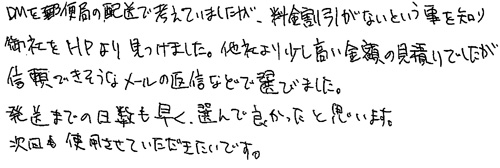 DMを郵便局の配送で考えていましたが、料金割引がないという事を知り
御社をHPより見つけました。他社より少し高い金額の見積りでしたが
信頼できそうなメールの返信などで選びました。
発送までの日数も早く、選んで良かったと思います。
次回も使用させていただきたいです。